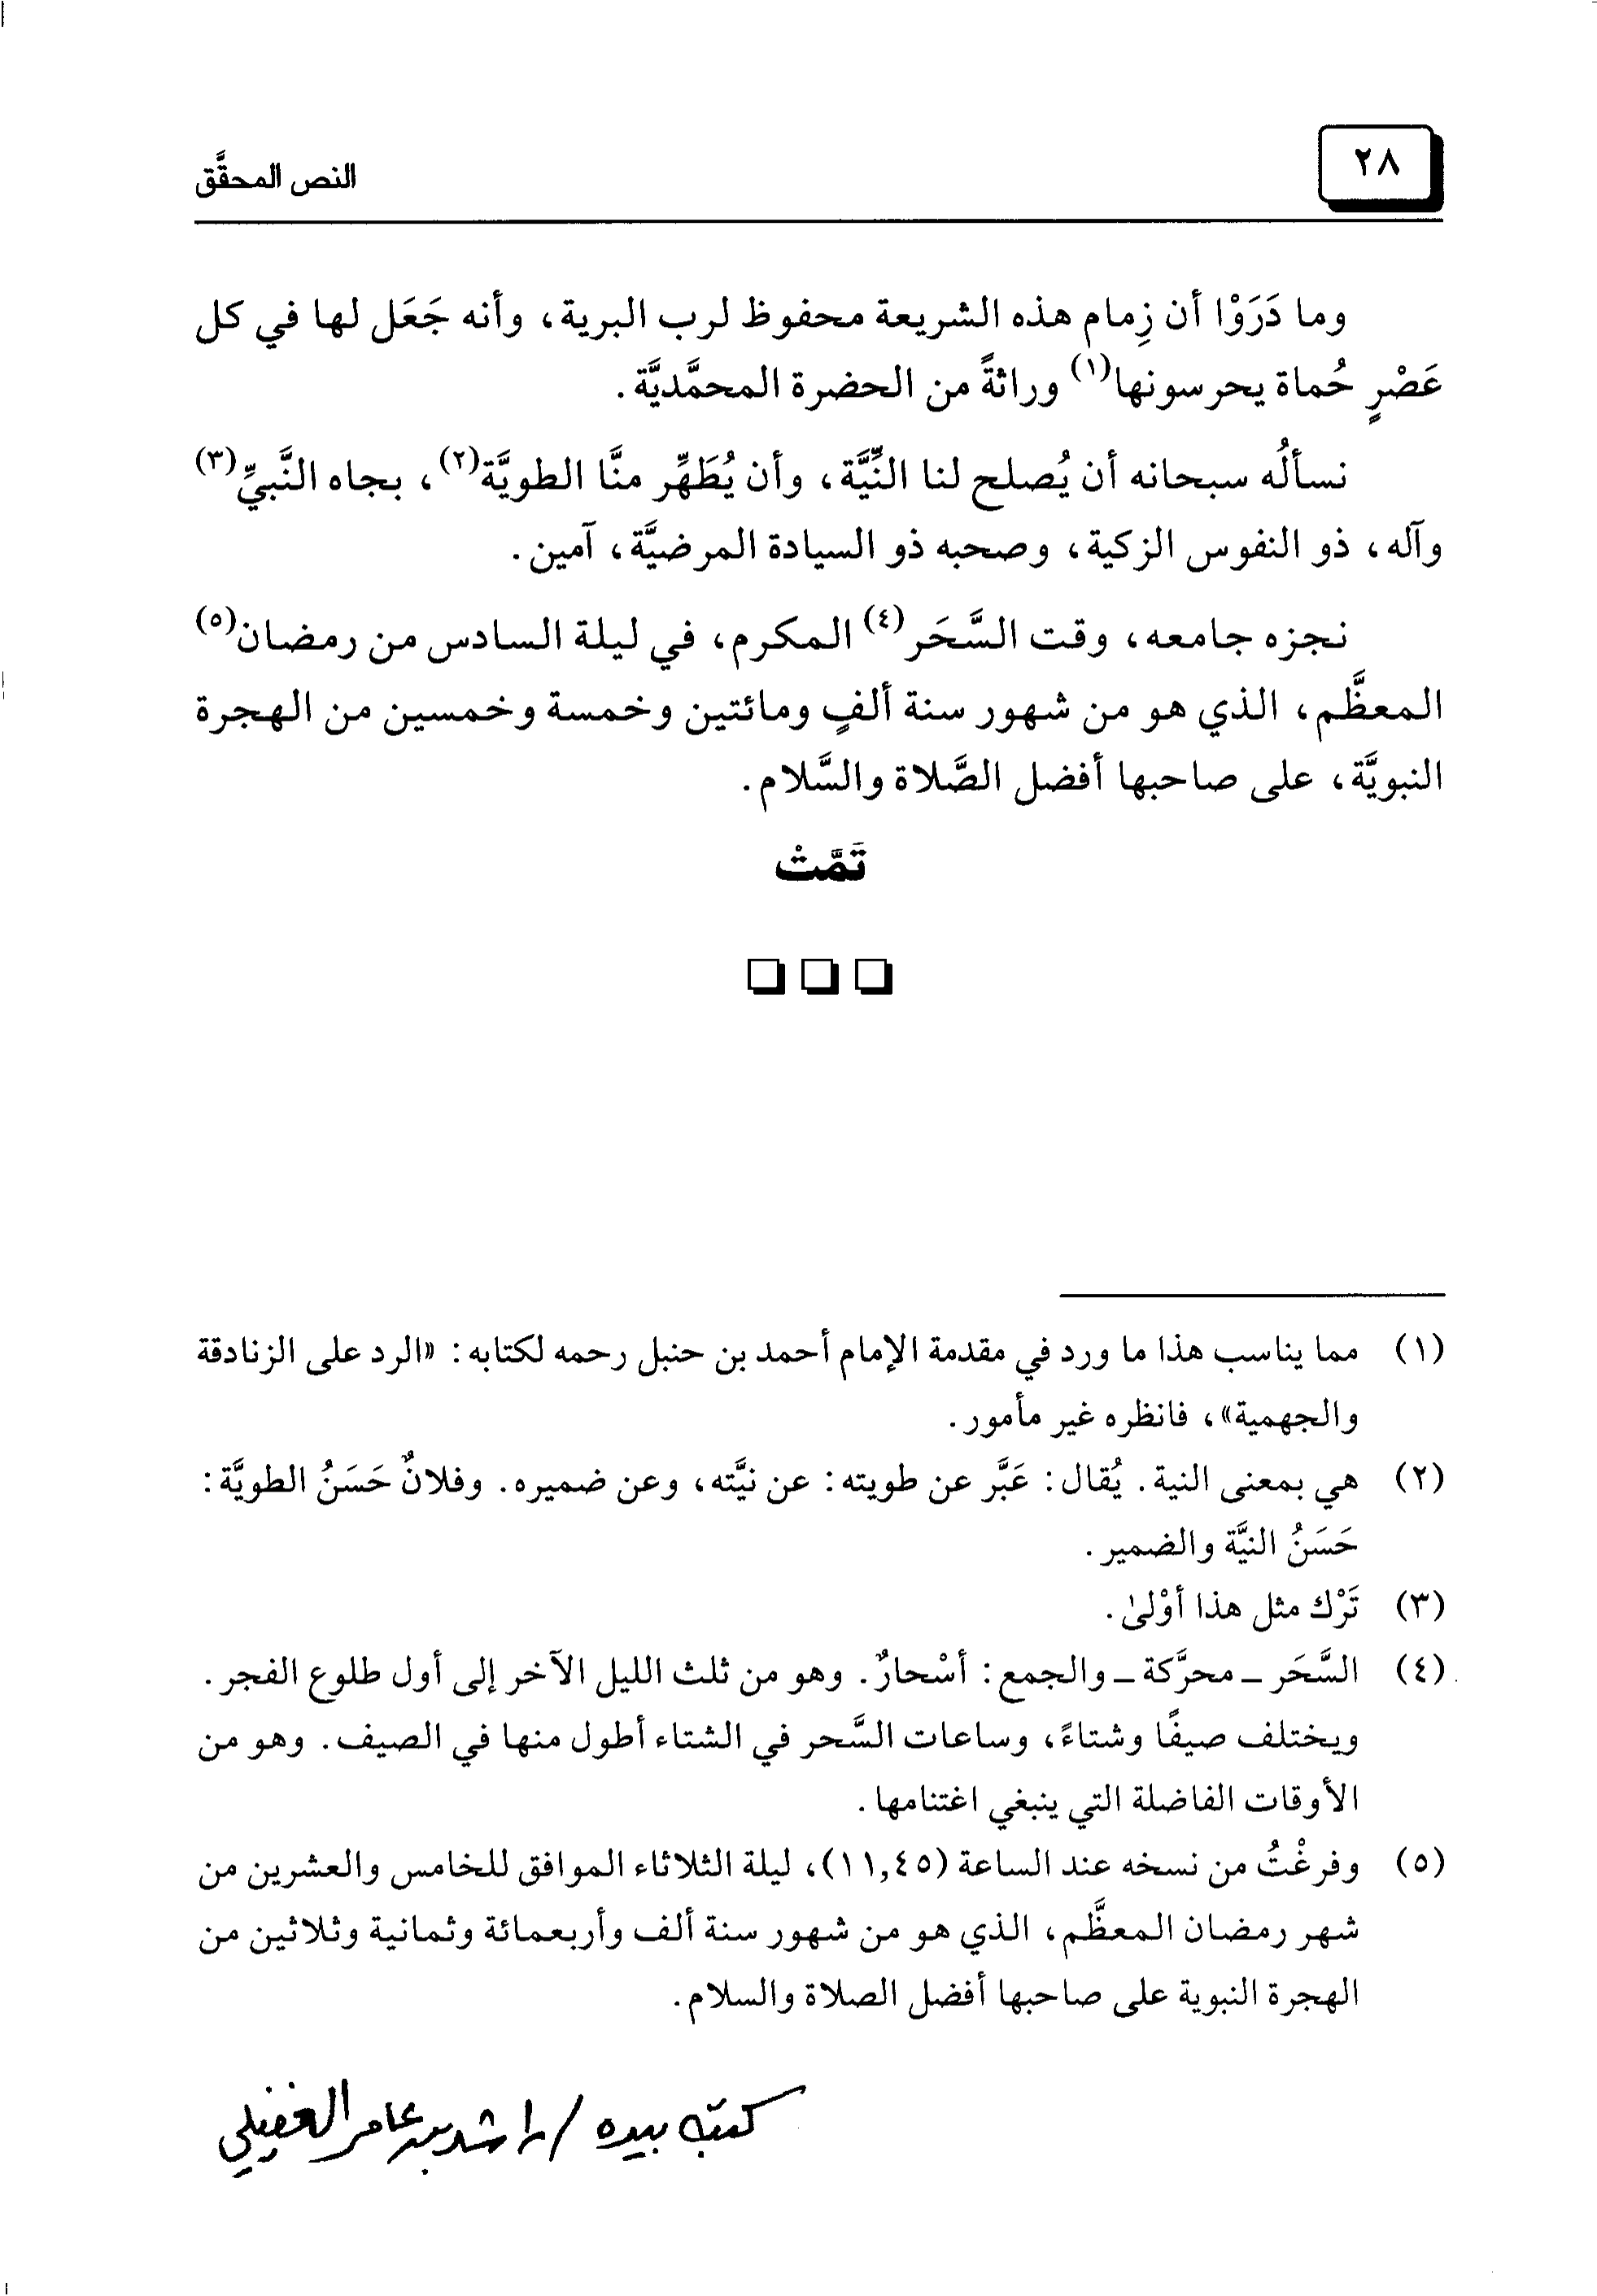 ٢٨
النص المحقَّق
وما دَرَوْا أن زِمام هذه الشريعة محفوظ لرب البرية، وأنه جَعَل لها في كل
عَصْرٍ حُماة يحرسونها(١) وراثةً من الحضرة المحمَّديَّة.
نسألُه سبحانه أن يُصلح لنا النِّيَّة، وأن يُطَهِّر منَّا الطويَّة(٢)، بجاه النَّبيِّ(٣)
وآله، ذو النفوس الزكية، وصحبه ذو السيادة المرضيَّة، آمين.
نجزه جامعه، وقت السَّحَر(٤) المكرم، في ليلة السادس من رمضان(٥)
المعظَّم، الذي هو من شهور سنة ألفٍ ومائتين وخمسة وخمسين من الهجرة
النبويَّة، على صاحبها أفضل الصَّلاة والسَّلام.
تَمَّتْ
(١) مما يناسب هذا ما ورد في مقدمة الإمام أحمد بن حنبل رحمه لكتابه: «الرد على الزنادقة
والجهمية»، فانظره غير مأمور.
(٢) هي بمعنى النية. يُقال: عَبَّر عن طويته: عن نيَّته، وعن ضميره. وفلانٌ حَسَنُ الطويَّة:
حَسَنُ النيَّة والضمير.
(٣) تَرْك مثل هذا أوْلىٰ.
(٤) السَّحَر ـ محرَّكة ـ والجمع: أسْحارٌ. وهو من ثلث الليل الآخر إلى أول طلوع الفجر.
ويختلف صيفًا وشتاءً، وساعات السَّحر في الشتاء أطول منها في الصيف. وهو من
الأوقات الفاضلة التي ينبغي اغتنامها.
(٥) وفرغْتُ من نسخه عند الساعة (١١,٤٥)، ليلة الثلاثاء الموافق للخامس والعشرين من
شهر رمضان المعظَّم، الذي هو من شهور سنة ألف وأربعمائة وثمانية وثلاثين من
الهجرة النبوية على صاحبها أفضل الصلاة والسلام.
كتبه بيده / راشد بن عامر الغفيلي